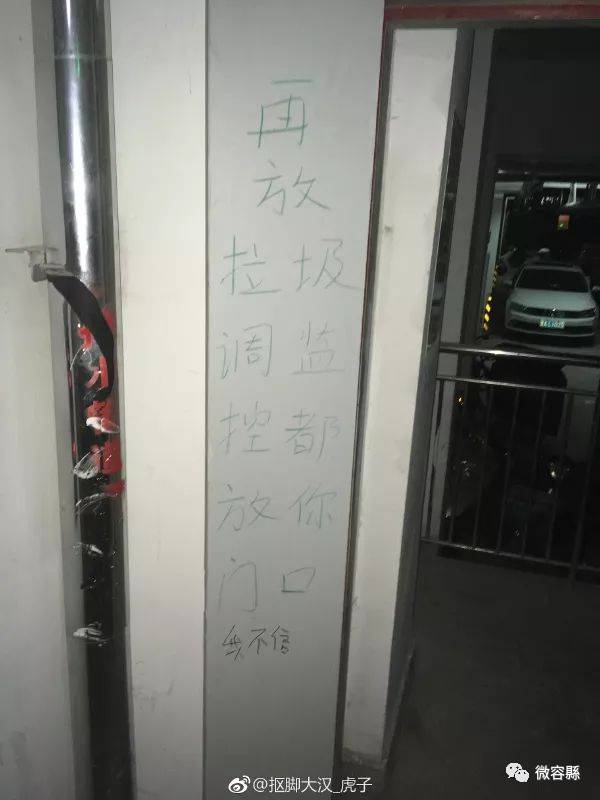 再
放
垃圾
调监
控都
放你
门口
我不信
@抠脚大汉_虎子
微容縣